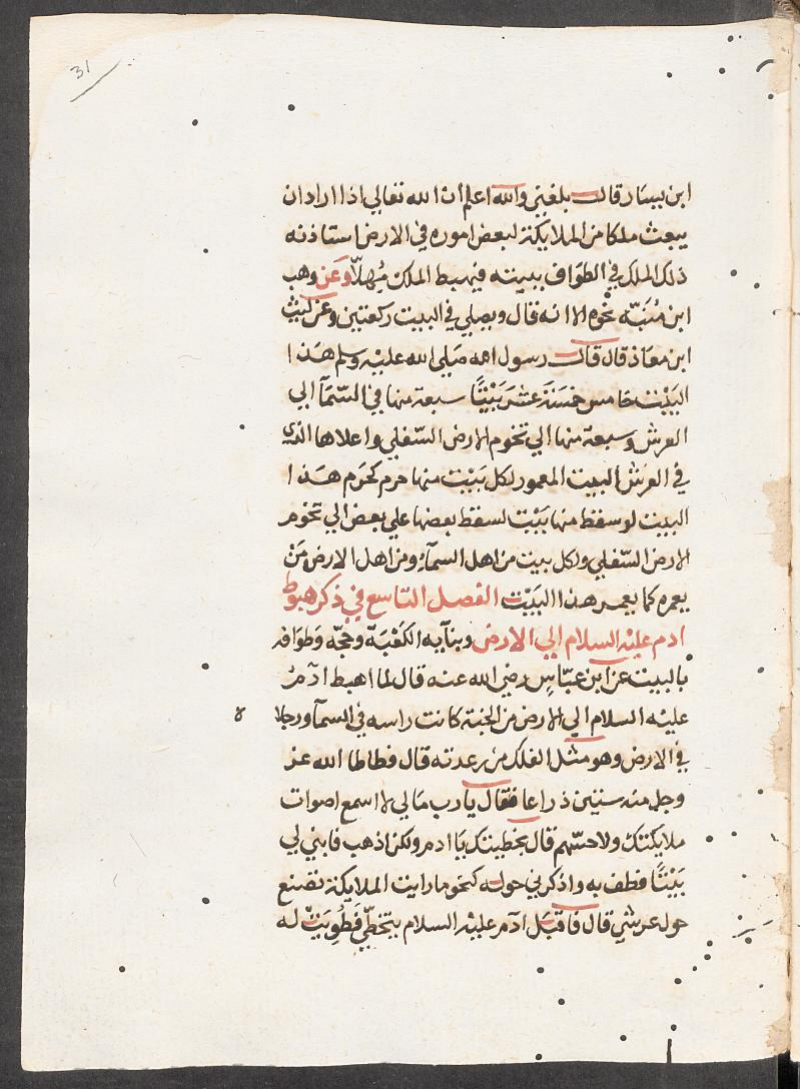 31
ابن يسار قال بلغني والله اعلم ان الله تعالي اذا اراد ان
يبعث ملكا من الملايكة لبعض اموره في الارض استاذنه
ذلك الملك في الطواف ببيته فيهبط الملك مُهلّاً وعن وهب
ابن مُنَبّه نحوه الا انه قال ويصلي في البيت ركعتين وعن ليث
ابن معاذ قال قال رسول الله صَلي الله عليْه وسلم هَذا
البَيْت خامس خمسَة عشَرَ بَيْتًا سبعة منها في السّمآ الي
العرش وسبعة منها الي تخوم الارض السّفلي واعلاها الذي
في العرش البيت المعمور لكل بَيْت منها حرم كحَرم هَذا
البيت لو سقط منها بَيْت لسقط بعضها علي بعض الي تخوم
الارض السّفلي ولكل بيت من اهل السمآء ومن اهل الارض مَن
يعمره كما يعمر هذا البَيْت الفصل التاسع في ذكر هبوط
ادم عليْه السلام الي الارض وبنآيه الكَعْبَة وحجّه وَطوَافه
بالبيت عن ابن عبّاسٍ رضي الله عنه قال لما اهبط ادَمُ
عليْه السلام الي الارض من الجنة كانت راسه في السمآ ورجلا
ه
في الارض وهو مثل الفلك من رعدته قال فطاطا الله عز
وجل منه ستين ذراعا فقال يارب مَالي لا اسمع اصوات
ملايكتك ولا حسّهم قال بخطيتك يَا ادم ولكن اذهب فابني لي
بَيْتًا فطف به واذكرني حوله كنحو ما رايت الملايكة تصنع
حوله عرشي قال فاقبَل ادَم عليْه السلام يتخطّي فَطُوِيَتْ له